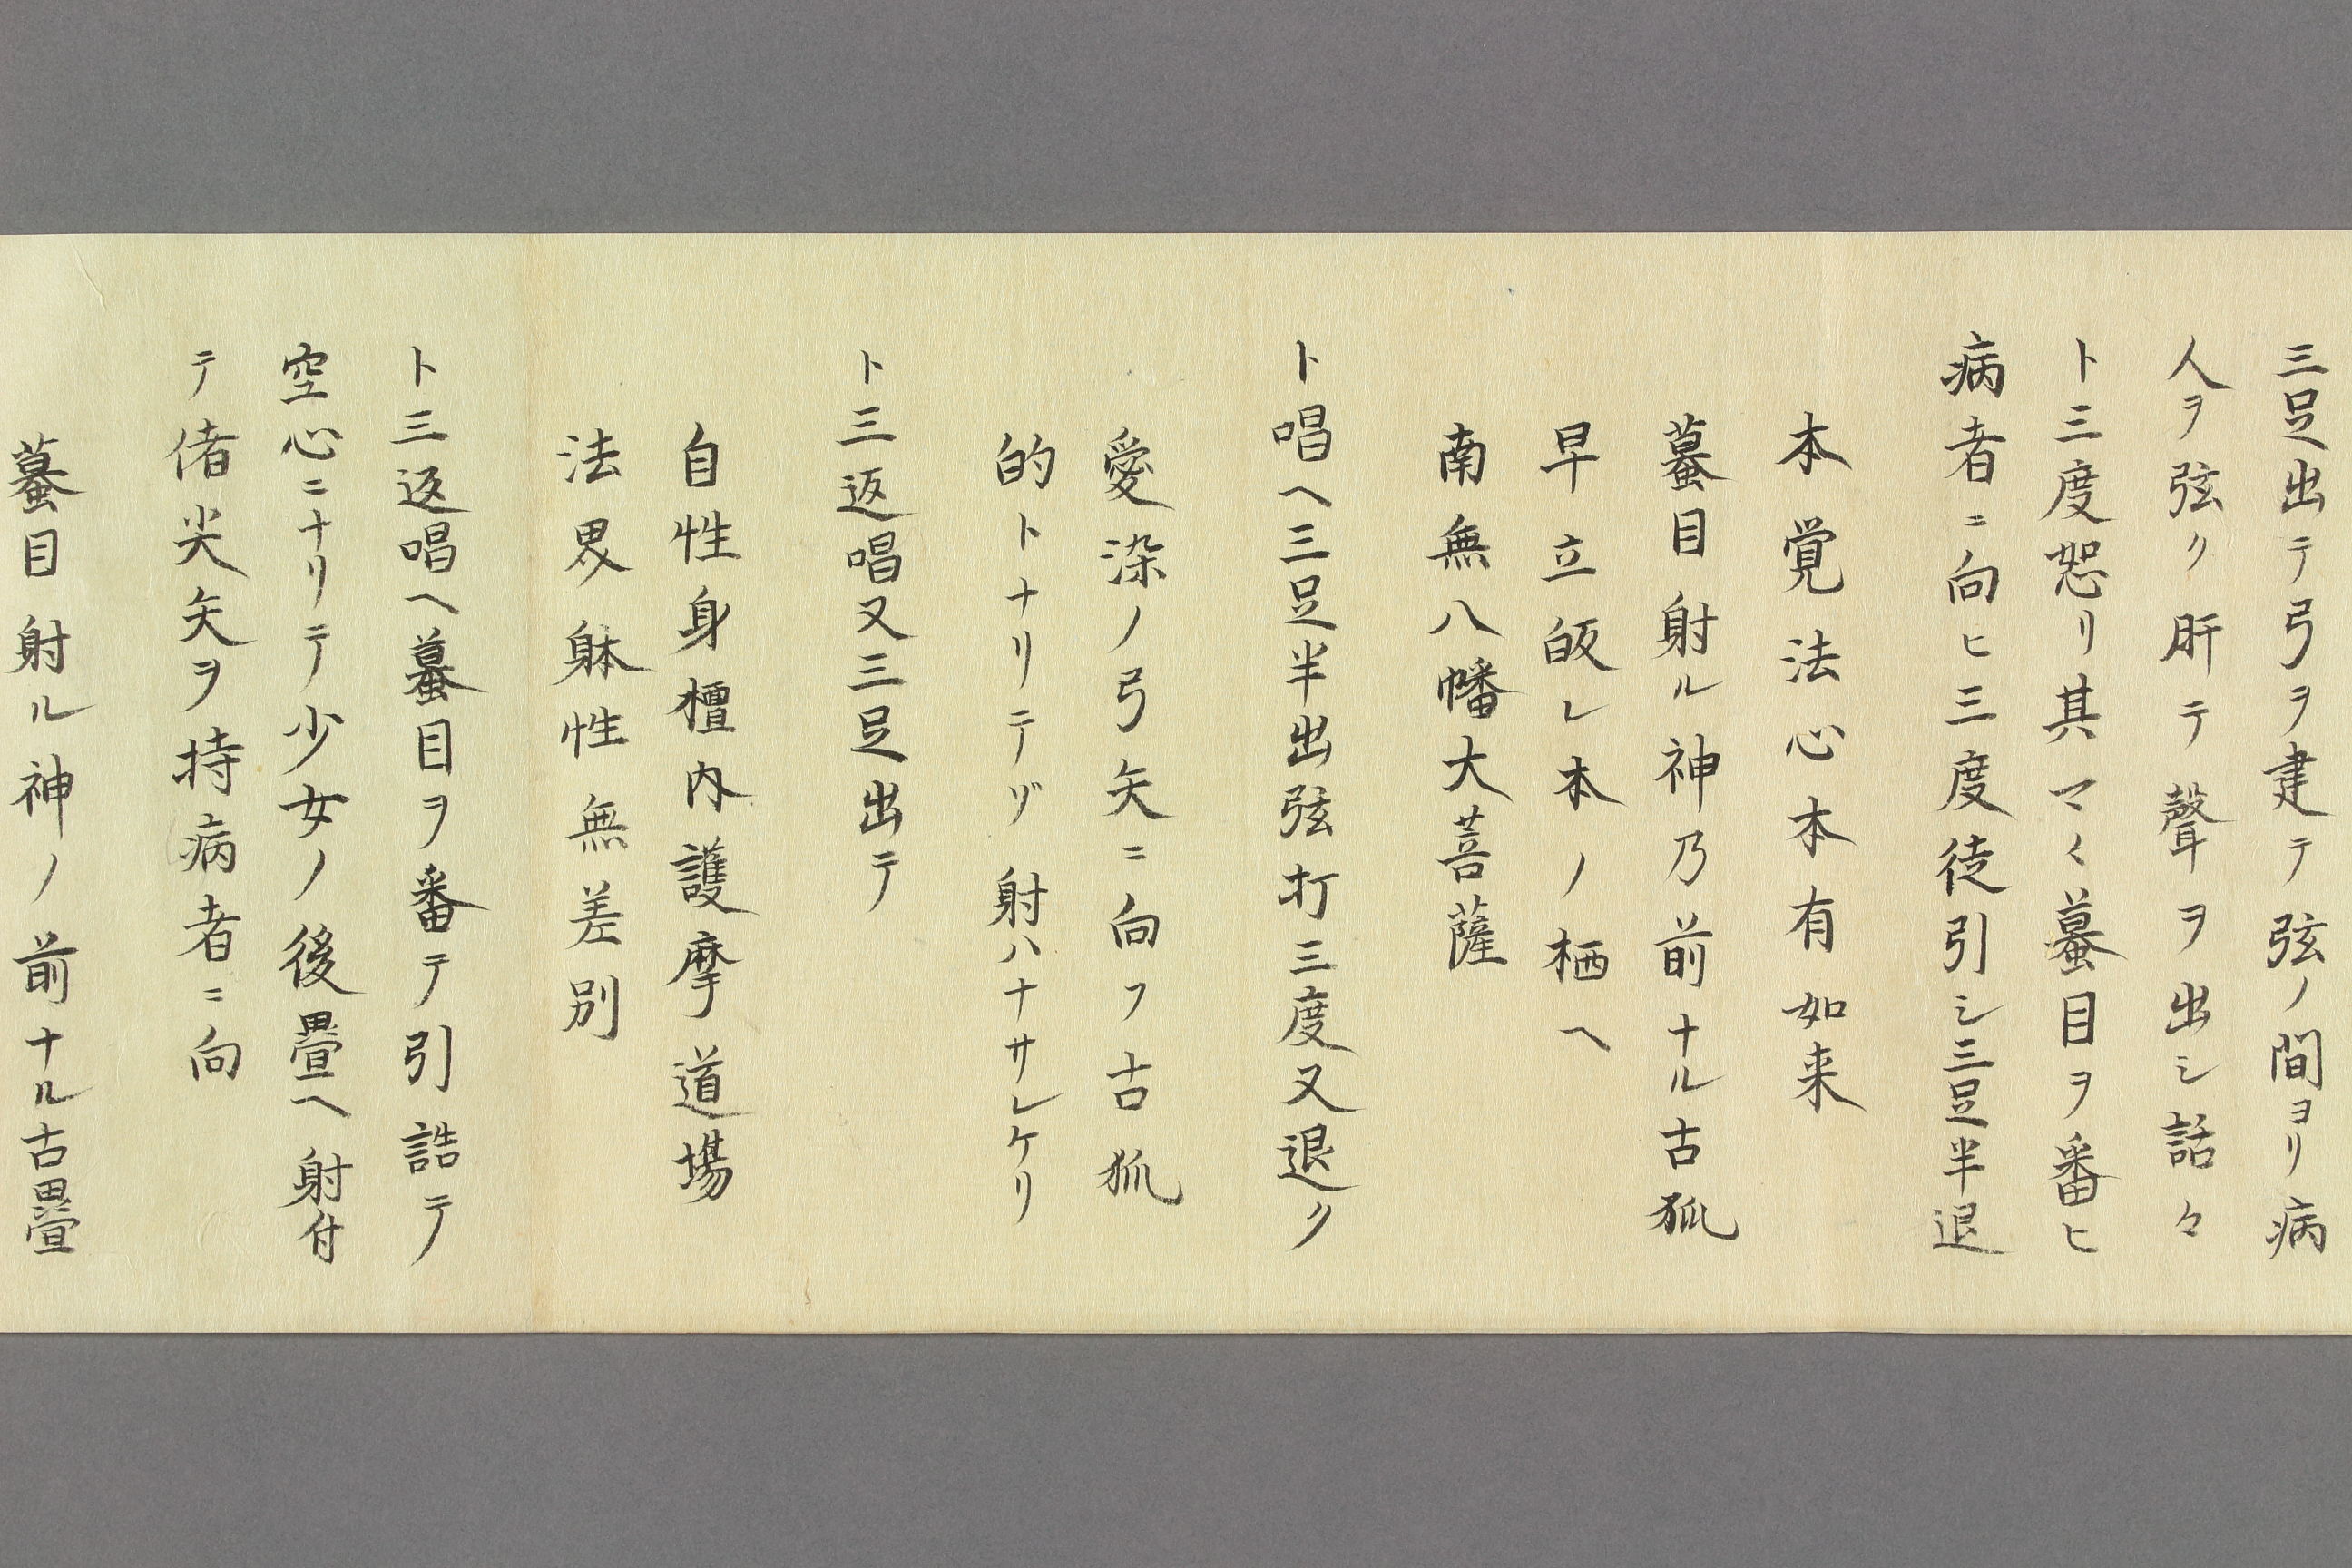 三足出テ弓ヲ建テ弦ノ間ヨリ病
人ヲ弦ク肝テ聲ヲ出シ話々
ト三度恕リ其マヽ蟇目ヲ番ヒ
病者ニ向ヒ三度徒引シ三足半退
本覚法心本有如来
蟇目射ル神乃前ナル古狐
早立皈レ本ノ栖ヘ
南無八幡大菩薩
ト唱ヘ三足半出弦打三度又退ク
愛染ノ弓矢ニ向フ古狐
的トナリテゾ射ハナサレケリ
ト三返唱又三足出テ
自性身檀内護摩道場
法界躰性無差別
ト三返唱ヘ蟇目ヲ番テ引誥テ
空心ニナリテ少女ノ後畳ヘ射付
テ偖尖矢ヲ持病者ニ向
蟇目射ル神ノ前ナル古畳